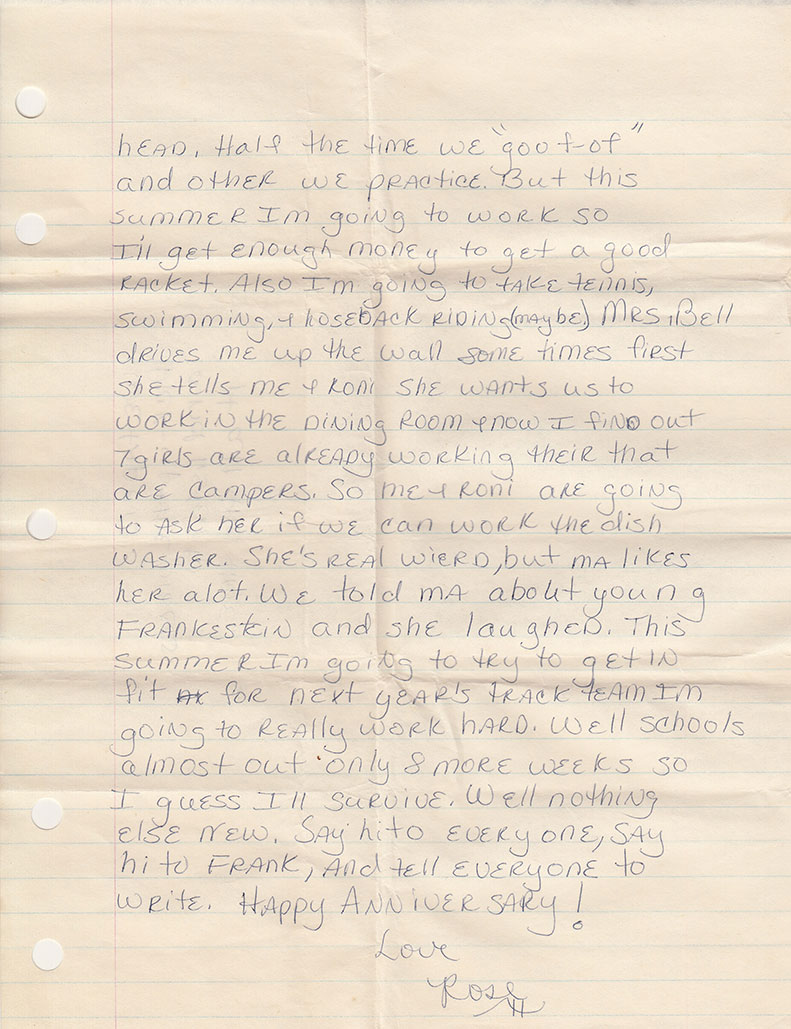 head. Half the time we "goof-of"
and other we practice. But this
summer Im going to work so
I'll get enough money to get a good
racket. Also I'm going to take tennis,
swimming, & hoseback riding (maybe.) Mrs. Bell
drives me up the wall some times first
she tells me & Roni she wants us to
work in the dining room & now I find out
7 girls are already working their that
are campers. So me & Roni are going
to ask her if we can work the dish
washer. She's real wierd, but ma likes
her alot. We told ma about young
Frankestein and she laughed. This
summer Im going to try to get in
fit for next year's track team Im
going to really work hard. Well schools
almost out only 8 more weeks so
I guess I'll survive. Well nothing
else new. Say hi to every one, say
hi to Frank, and tell everyone to
write. Happy Anniversary!
Love
Rose